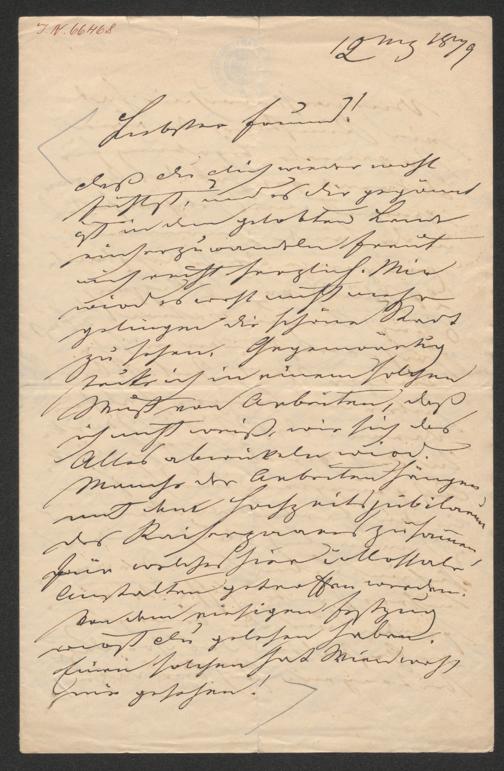 I.N. 66468
12 Mz 1879
Liebster Freund!
Daß du dich wieder wohl
fühlst, und es dir gegönnt
ist in dem gelobten Lande
einherzuwandeln freut
mich recht herzlich. Mir
wird es wohl nicht mehr
gelingen die schöne Stadt
zu sehen. Gegenwärtig
stecke ich in einem solchen
Wust von Arbeiten, daß
ich nicht weiß, wie sich das
Alles abwickeln wird.
Manche der Arbeiten hängen
mit dem Hochzeitsjubiläum
des Kaiserpaares zusammen,
für welches hier kolossale
Anstalten getroffen werden.
Von dem riesigen Festzug
wirst du gelesen haben.
Einen solchen hat Wien wohl
nie gesehen!